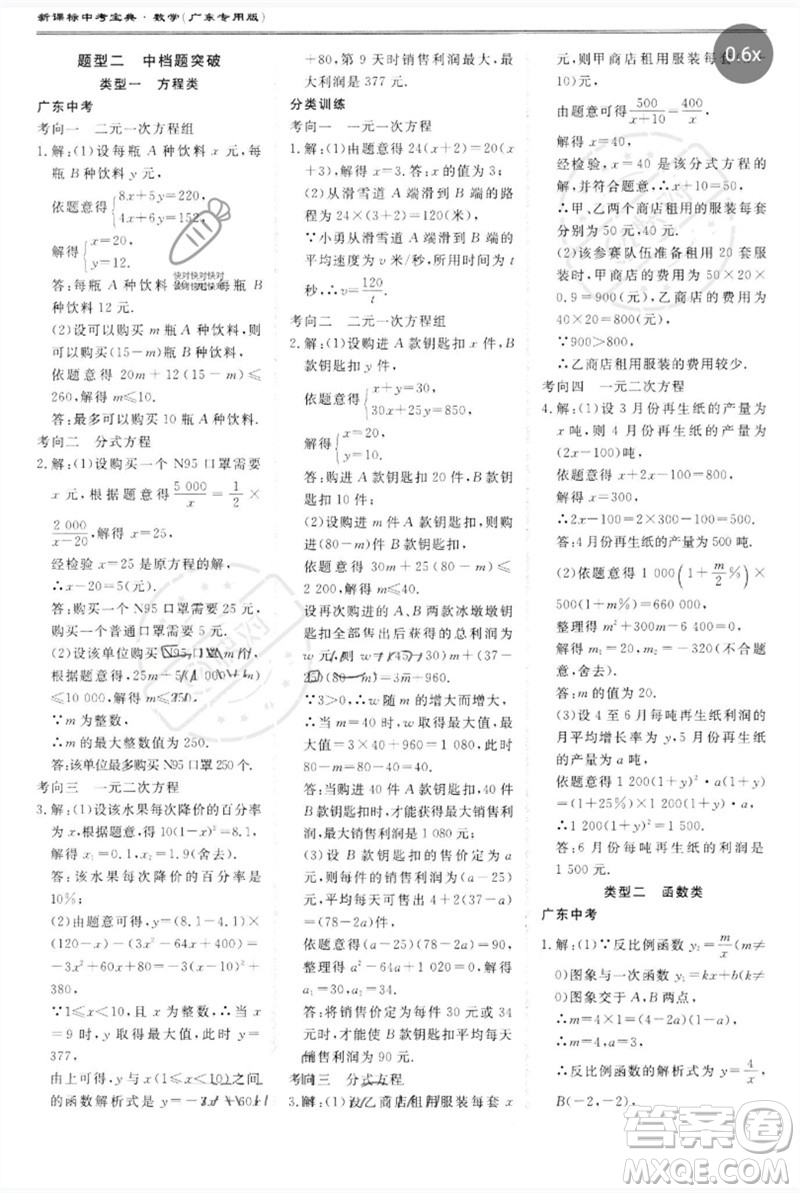 新课标中考宝典·数学(广东专用版)
0.6x
题型二 中档题突破
类型一 方程类
广东中考
考向一 二元一次方程组
1.解:(1)设每瓶A种饮料x元,每
瓶B种饮料y元,
依题意得{8x+5y=220, 4x+6y=152,
解得{x=20, y=12.
答:每瓶A种饮料 每瓶B
种饮料12元.
(2)设可以购买m瓶A种饮料,则
购买(15-m)瓶B种饮料,
依题意得20m+12(15-m)≤
260,解得m≤10.
答:最多可以购买10瓶A种饮料.
考向二 分式方程
2.解:(1)设购买一个N95口罩需要
x元,根据题意得5 000/x=1/2×
2 000/(x-20),解得x=25,
经检验x=25是原方程的解,
∴x-20=5(元).
答:购买一个N95口罩需要25元,
购买一个普通口罩需要5元.
(2)设该单位购买N95口罩m个,
根据题意得25m+5
≤10 000,解得m≤
∵m为整数,
∴m的最大整数为250.
答:该单位最多购买N95口罩250个.
考向三 一元二次方程
3.解:(1)设该水果每次降价的百分率
为x,依题意得10(1-x)²=8.1,
解得x₁=0.1,x₂=1.9(舍去).
答:该水果每次降价的百分率是
10%;
(2)由题意可得y=(8.1-4.1)×
(120-x)-(3x²-64x+400)=
-3x²+60x+80=-3(x-10)²+
380,
∵1≤x≤10,且x为整数,∴当x
=9时,y取得最大值,此时y=
377,
由上可得,y与x(1≤x≤10)之间
的函数解析式是y=
+80,第9天时销售利润最大,最
大利润是377元.
分类训练
考向一 一元一次方程
1.解:(1)由题意得24(x+2)=20(x
+3),解得x=3.答:x的值为3;
(2)从滑雪道A端滑到B端的路
程为24×(3+2)=120(米),
∵小勇从滑雪道A端滑到B端的
平均速度为v米/秒,所用时间为t
秒,∴v=120/t.
考向二 二元一次方程组
2.解:(1)设购进A款钥匙扣x件,B
款钥匙扣y件,
依题意得{x+y=30, 20x+25y=650,
解得{x=20, y=10.
答:购进A款钥匙扣20件,B款钥
匙扣10件;
(2)设购进m件A款钥匙扣,则购
进(80-m)件B款钥匙扣,
依题意得30m+25(80-m)≤
2 200,解得m≤40.
设再次购进的A、B两款冰墩墩钥
匙扣全部售出后获得的总利润为
w元,则w= m+(37-
(80-m)=3m+960.
∵3>0,∴w随m的增大而增大,
∴当m=40时,w取得最大值,最
大值=3×40+960=1 080,此时
80-m=80-40=40.
答:当购进40件A款钥匙扣,40件
B款钥匙扣时,才能获得最大销售利
润,最大销售利润是1 080元;
(3)设B款钥匙扣的售价定为a
元,则每件的销售利润为(a-25)
元,平均每天可售出4+2(37-a)
=(78-2a)件,
依题意得(a-25)(78-2a)=90,
整理得a²-64a+1 020=0,解得
a₁=30,a₂=34.
答:将销售价定为每件30元或34
元时,才能使B款钥匙扣平均每天
销售利润为90元.
考向三 分式方程
3.解:(1)设乙商店租用服装每套x
元,则甲商店租用服装每套(x
+10)元,
由题意可得500/(x+10)=400/x,
解得x=40,
经检验,x=40是该分式方程的
解,并符合题意,∴x+10=50,
∴甲、乙两个商店租用的服装每套
分别为50元,40元.
(2)该参赛队伍准备租用20套服
装时,甲商店的费用为50×20×
0.9=900(元),乙商店的费用为
40×20=800(元),
∵900>800,
∴乙商店租用服装的费用较少.
考向四 一元二次方程
4.解:(1)设3月份再生纸的产量为
x吨,则4月份再生纸的产量为
(2x-100)吨,
依题意得x+2x-100=800,
解得x=300,
∴2x-100=2×300-100=500.
答:4月份再生纸的产量为500吨.
(2)依题意得1 000(1+m/2%)×
500(1+m%)=660 000,
整理得m²+300m-6 400=0,
解得m₁=20,m₂=-320(不合题
意,舍去).
答:m的值为20.
(3)设4至6月每吨再生纸利润的
月平均增长率为y,5月份再生纸
的产量为a吨,
依题意得1 200(1+y)²·a(1+
y)=(1+25%)×1 200(1+y)·a,
∴1 200(1+y)²=1 500.
答:6月份每吨再生纸的利润是
1 500元.
类型二 函数类
广东中考
1.解:(1)∵反比例函数y₂=m/x(m≠
0)图象与一次函数y₁=kx+b(k≠
0)图象交于A、B两点,
∴m=4×1=(4-2a)×(-2),
∴m=4,a=3.
∴反比例函数的解析式为y=4/x,
B(-2,-2),
答案圈
MXQE.COM